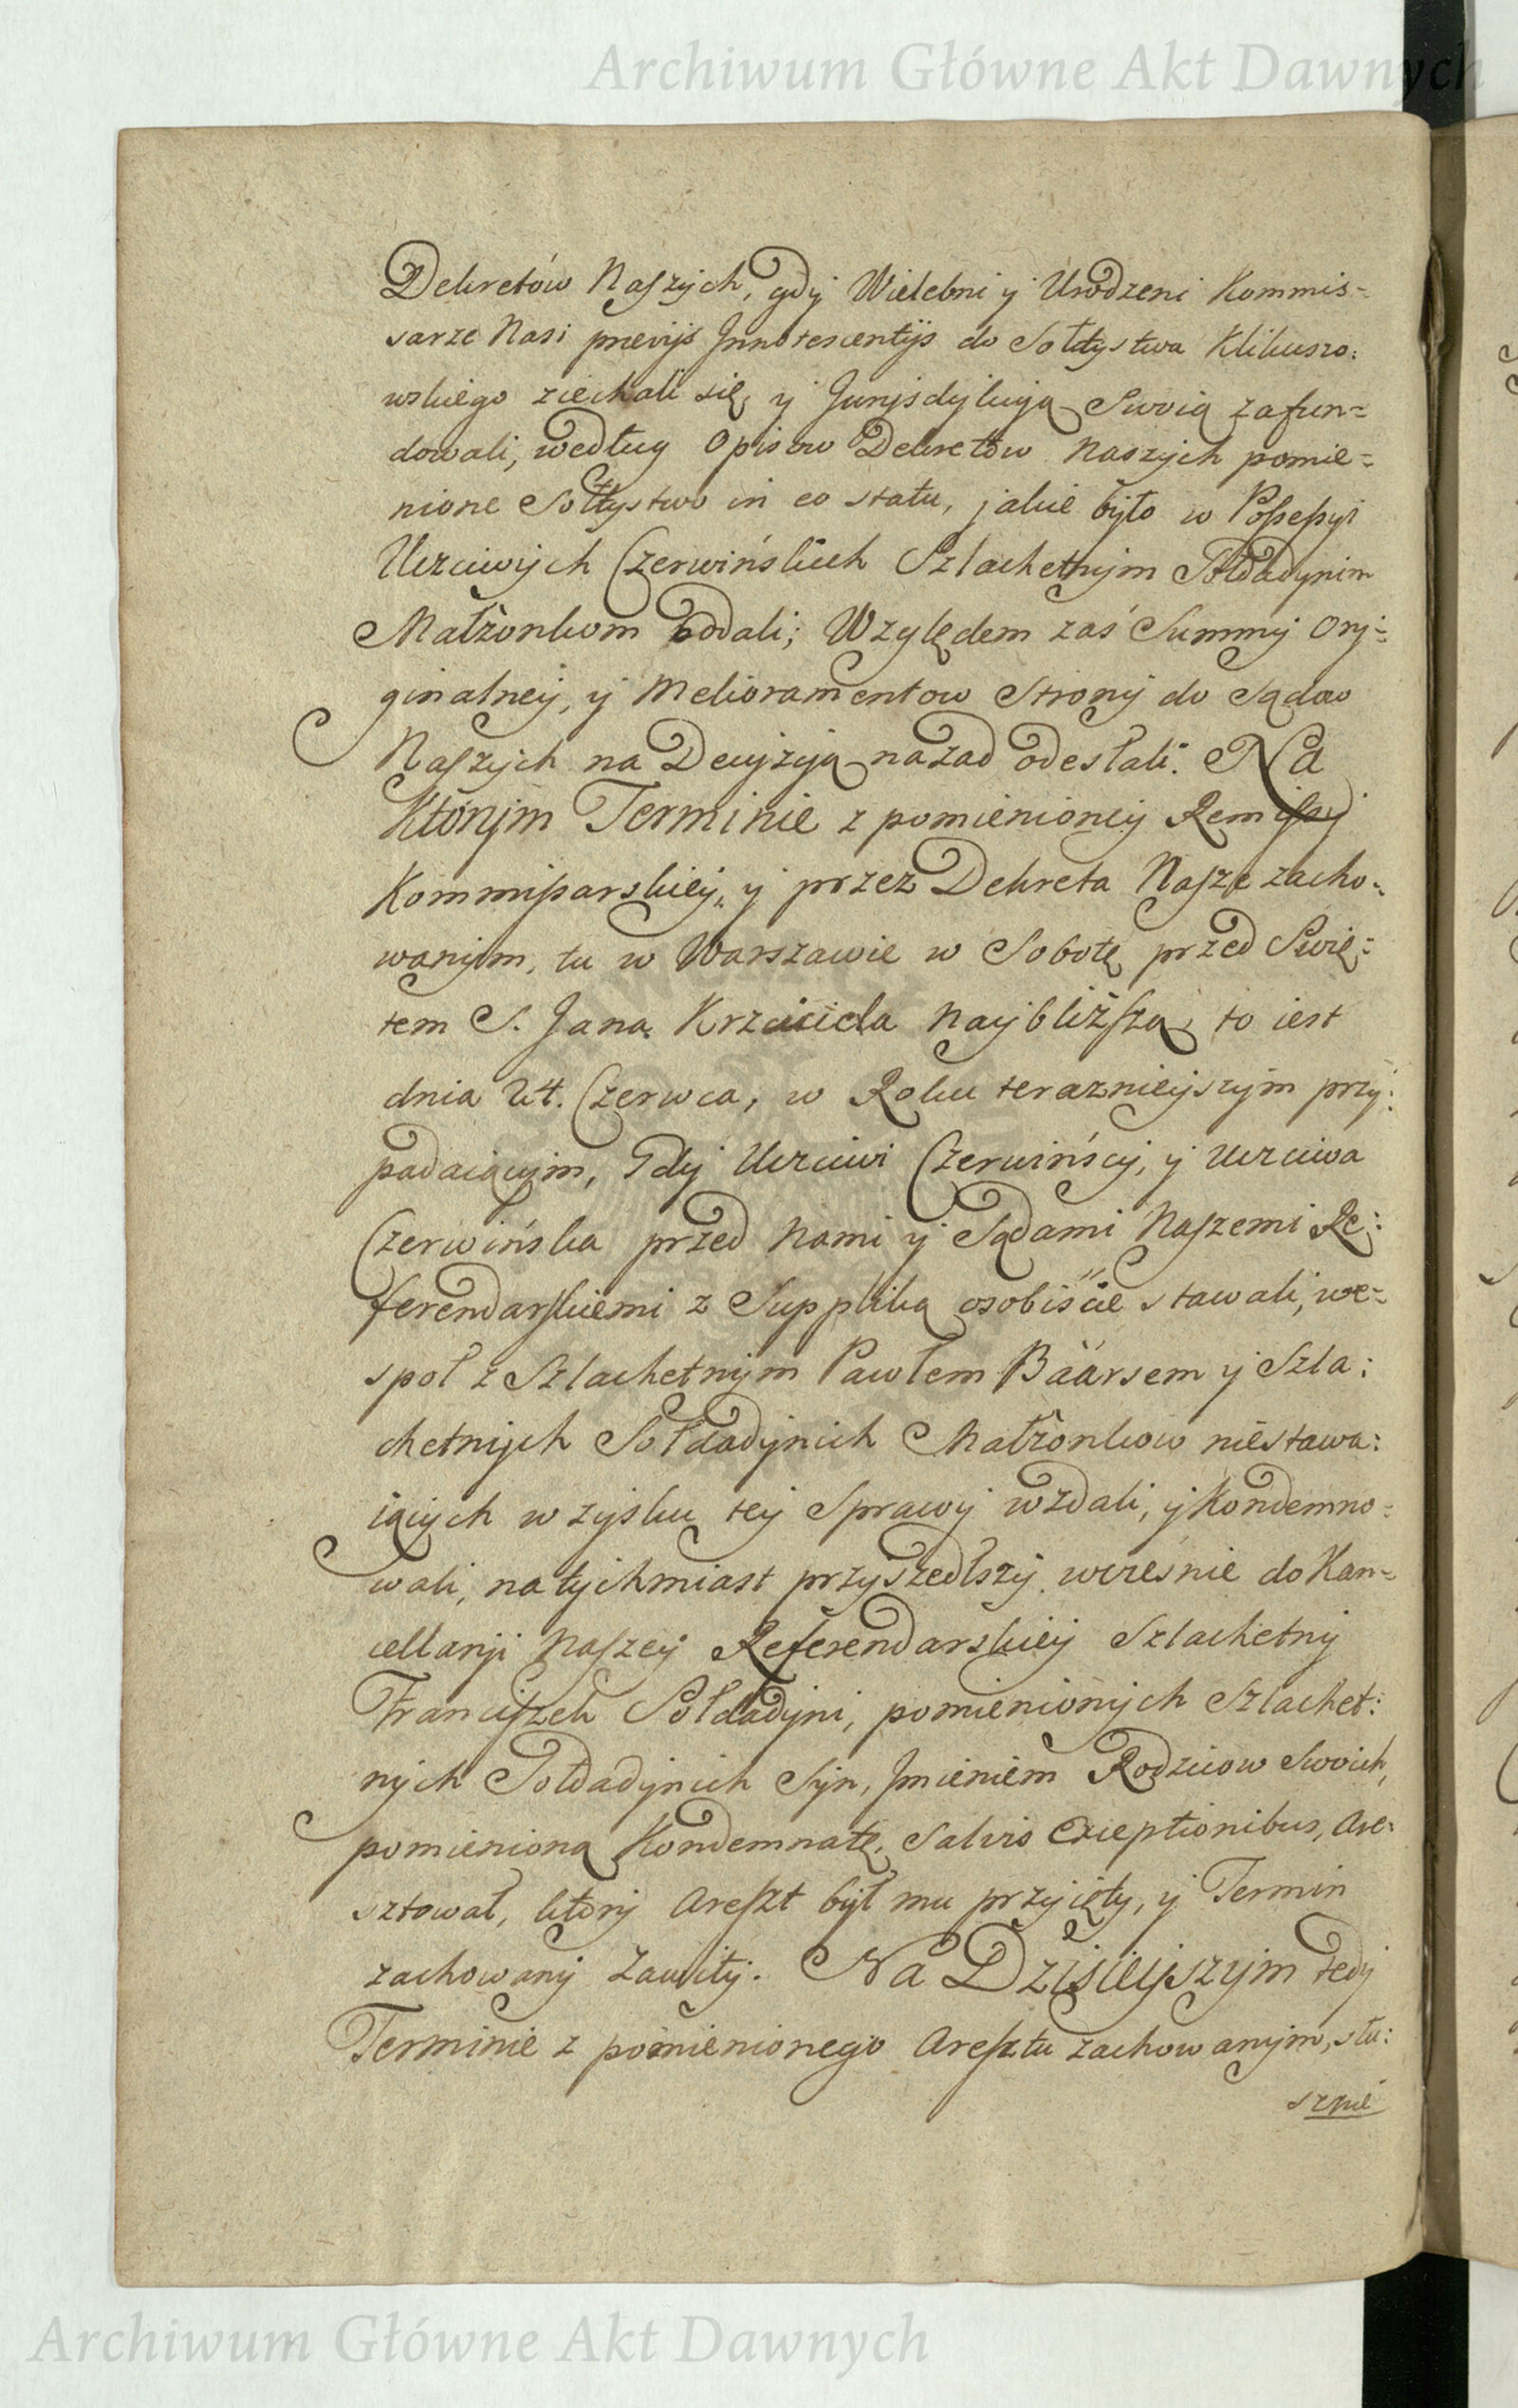 Archiwum Główne Akt Dawnych
Dekretów Naszych, gdy Wielebni y Urodzeni Kommis=
sarze Nasi prævijs Innotescentijs do Sołtystwa Klikuszo:
wskiego ziechali się, y Juryjsdykcyą Swoią zafun=
dowali, według Opisow Dekretow Naszych pomie=
nione Sołtystwo in eo statu, jakie było w Possessyi
Uczciwych Czerwińskich Szlachetnym Sołdadynim
Małżonkom oddali; Względem zaś Summy Ory=
ginalney, y Melioramentow Strony do Sądow
Naszych na Decyzyją nazad odesłali. Na
Którym Terminie z pomienioney Remissy
Kommissarskiey, y przez Dekreta Nasze zacho=
wanym, tu w Warszawie w Sobotę przed Swię=
tem S. Jana Krzciciela Naybliższą, to iest
dnia 24. Czerwca, w Roku teraznieyszym przy:
padaiącym, Gdy Uczciwi Czerwińscy, y Uczciwa
Czerwińska przed Nami y Sądami Naszemi Re:
ferendarskiemi z Suppliką osobiście stawali, we=
społ z Szlachetnym Pawłem Bäärsem y Szla:
chetnych Sołdadynich Małżonkow niestawa:
iących w zysku tey Sprawy wzdali, y Kondemno=
wali, natychmiast przyszedłszy wcześnie do Kan=
cellaryi Naszey Referendarskiey Szlachetny
Franciszek Sołdadyni, pomienionych Szlachet:
nych Sołdadynich Syn, Imieniem Rodzicow Swoich,
pomienioną Kondemnatę, Salvis Exceptionibus, Are:
sztował, który Areszt był mu przyięty, y Termin
zachowany Zawity. Na Dzisieyszym tedy
Terminie z pomienionego Aresztu zachowanym, słu:
sznie
Archiwum Główne Akt Dawnych